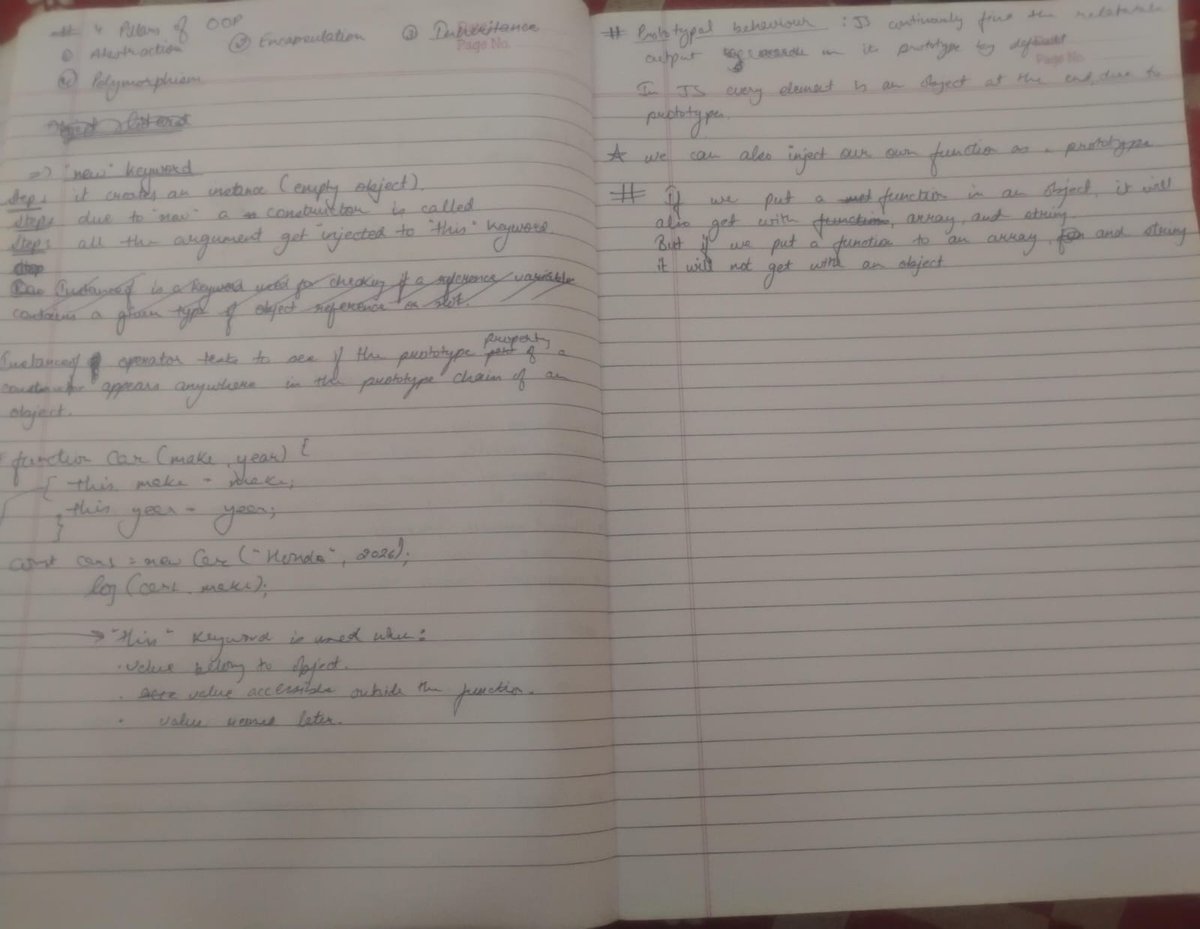 # 4 Pillars of OOP
① Abstraction ② Encapsulation ③ Inheritance
Page No.
④ Polymorphism
=> "new" keyword
Step: it creates an instance (empty object).
Step: due to "new" a constructor is called
Step: all the argument get injected to "this" keyword.
Step
Instanceof is a keyword used for checking if a reference variable
contains a given type of object reference or not.
Instanceof operator tests to see if the prototype property of a
constructor appears anywhere in the prototype chain of an
object.
function Car (make, year) {
{ this. make = make;
this year = year;
}
const cars = new Car ("Honda", 2026);
log (cars. make);
→ "this" keyword is used when:
· value belong to object.
· value accessible outside the function.
· value later.
# Prototypal behaviour : JS continously find the
output in it prototype by default
Page No.
In JS every element is an object at the end, due to
prototype.
☆ we can also inject our own function as a prototype
# If we put a function in an object, it will
also get with function, array, and string.
But if we put a function to an array, and string
it will not get with an object